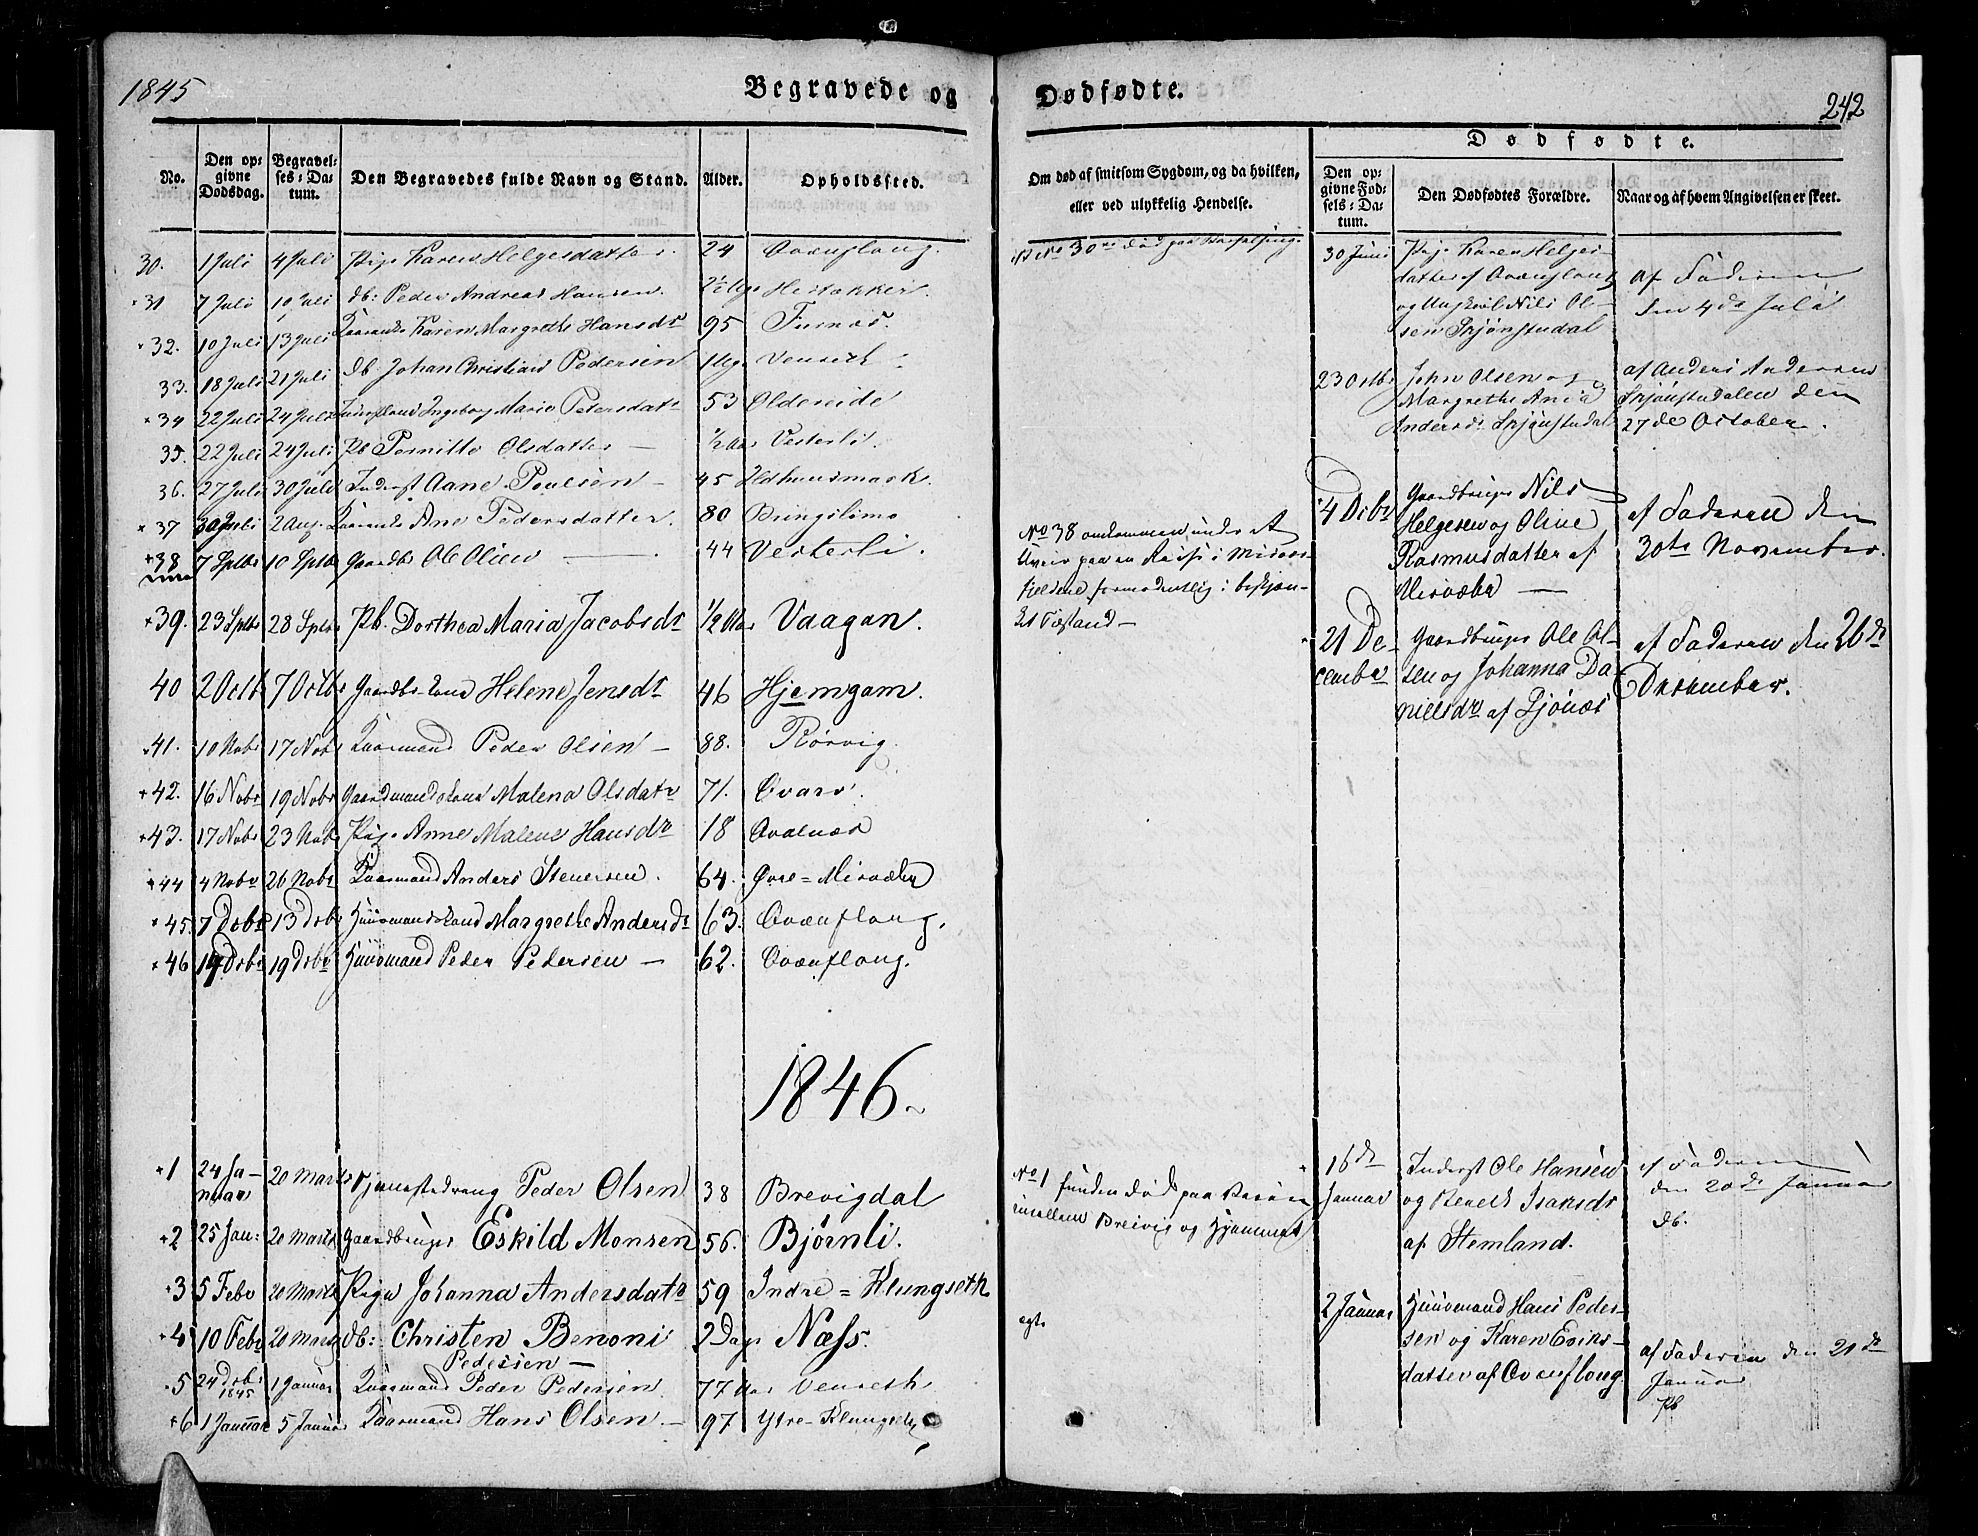 1845
Begravede og
Dødfødte.
242
No.
Den opgivne Dødsdag.
Begravelses-Datum.
Den Begravedes fulde Navn og Stand.
Alder.
Opholdssted.
Om død af smitsom Sygdom, og da hvilken,
eller ved ulykkelig Hendelse.
Dødfødte.
Den opgivne Fødsels-Datum.
Den Dødfødtes Forældre.
Naar og af hvem Angivelsen er skeet.
30. 1 Juli 4 Juli Pige Karen Helgesdatter. 24
31 7 Juli 10 Juli db: Peder Andreas Hansen
32. 10 Juli 13 Juli Karen Margrethe Hansdr 95 Furnæs.
33. 18 Juli 21 Juli db Johan Christian Pedersen 1 Ug. Venseth
34 22 Juli 24 Juli Ingeborg Marie Petersdatr 53 Oldereide
35. 22 Juli 24 Juli Pb Olsdatter — 1/2 Aar Vesterli.
36. 27 Juli 30 Juli Inderst Aane Poulsen — 45
37 30 Juli 2 Aug. Ane Pedersdatter. 80
38 7 Sptbr 10 Sptbr Gaardbr Ole Olsen 44 Vesterli.
39. 23 Sptbr 28 Sptbr Pb. Dorthea Maria Jacobsdr 1/2 Aar Vaagan.
40 2 Octb 7 Octbr Gaardbr. kone Helene Jensdr 46 Hjemgam.
41. 10 Nobr 17 Nobr Kaarmand Peder Olsen — 88. Rørvig.
42. 16 Nobr 19 Nobr Gaardmandskone Malena Olsdatr 71. Øvarv.
43. 17 Nobr 23 Nobr Pige Anne Malene Hansdr 18
44 4 Nobr 26 Nobr Kaarmand Anders Stenersen. 64. Øvre = Misvær
45. 7 Dcbr 13 Dcbr Huusmandskone Margrethe Andersdr 63. Qvænflong.
46 14 Dcbr 19 Dcbr Huusmand Peder Pedersen — 62. Qvænflong.
1846.
1 24 Januar 20 Marts Tjenestedreng Peder Olsen 38 Brevigdal
2 25 Jan: 20 Marts Gaardbruger Eskild Monsen 56. Bjørnli.
3 5 Febr 20 Marts Pige Johanna Andersdatr 59 Indre = Klungseth
4 10 Febr 20 Marts db: Christen Benoni 2 Dage Næss.
Pedersen —
5 24 Dcbr 1845 1 Januar Kaarmand Peder Pedersen. 77 Aar Venseth
6 1 Januar 5 Januar Kaarmand Hans Olsen. — 97 Ytre-Klungseth
No 30 død paa
No 38 omkommen under et
Uveir paa en Reise i
formodentlig i
No 1 funden død paa
imellem Breivig og
egte
30 Juni Pige Karen Helges-
datter af Qvænflong
og Ungkarl Nils Ol-
sen Skjønstudal
af Faderen
den 4de Juli
23 Octbr John Olsen og
Margrethe Ania
Andersdr Skjønstudal
af Anders Andersen
Skjønstudalen den
27de October.
4 Dcbr Gaardbruger Nils
Helgesen og Oline
Rasmusdatter af
Misvær —
af Faderen den
30te November.
21 December Gaardbruger Ole Ol-
sen og Johanna Da-
nielsdr af Ljønæs
af Faderen den 26de
December.
16de Januar Inderst Ole Hansen
og Bereth Isaksdr
af Stemland.
af Faderen
den 20de Januar
db.
2 Januar Huusmand Hans Peder-
sen og Karen Eriks-
datter af Qvænflong
af Faderen den 21de
Januar
Pb